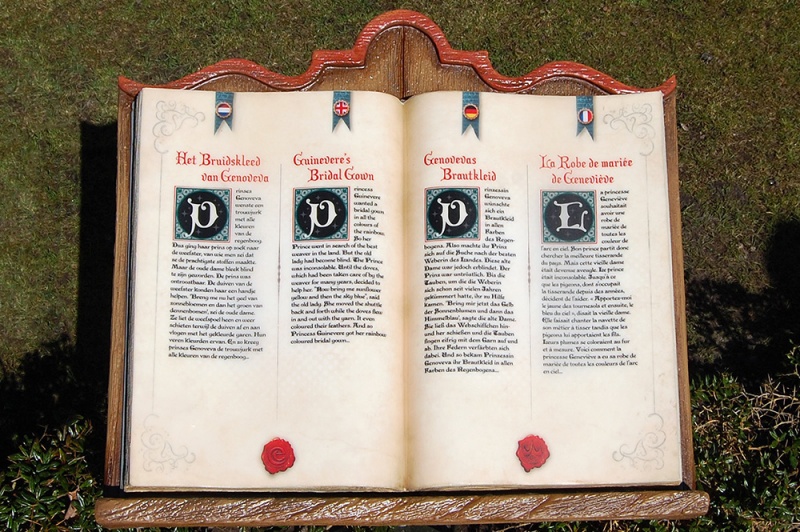 Het Bruidskleed
van Genoveva
Prinses
Genoveva
wenste een
trouwjurk
met alle
kleuren
van de
regenboog.
Dus ging haar prins op zoek naar
de weefster, van wie men zei dat
ze de prachtigste stoffen maakte.
Maar de oude dame bleek blind
te zijn geworden. De prins was
ontroostbaar. De duiven van de
weefster konden haar een handje
helpen. 'Breng me nu het geel van
zonnebloemen en dan het groen van
dennenbomen', zei de oude dame.
Ze liet de weefspoel heen en weer
schieten terwijl de duiven af en aan
vlogen met het gekleurde garen. Hun
veren kleurden ervan. En zo kreeg
prinses Genoveva de trouwjurk met
alle kleuren van de regenboog...
Guinevere's
Bridal Gown
Princess
Guinevere
wanted a
bridal gown
in all the
colours of
the rainbow.
So her
Prince went in search of the best
weaver in the land. But the old
lady had become blind. The Prince
was inconsolable. Until the doves,
which had been taken care of by the
weaver for many years, decided to
help her. 'Now bring me sunflower
yellow and then the sky blue', said
the old lady. She moved the shuttle
back and forth while the doves flew
in and out with the yarn. It even
coloured their feathers. And so
Princess Guinevere got her rainbow
coloured bridal gown...
Genovevas
Brautkleid
Prinzessin
Genoveva
wünschte
sich ein
Brautkleid
in allen
Farben
des Regen-
bogens. Also machte ihr Prinz
sich auf die Suche nach der besten
Weberin des Landes. Diese alte
Dame war jedoch erblindet. Der
Prinz war untröstlich. Bis die
Tauben, um die die Weberin
sich schon seit vielen Jahren
gekümmert hatte, ihr zu Hilfe
kamen. 'Bring mir jetzt das Gelb
der Sonnenblumen und dann das
Himmelblau', sagte die alte Dame.
Sie ließ das Webschiffchen hin-
und her schießen und die Tauben
flogen eifrig mit dem Garn auf und
ab. Ihre Federn verfärbten sich
dabei. Und so bekam Prinzessin
Genoveva ihr Brautkleid in allen
Farben des Regenbogens...
La Robe de mariée
de Geneviève
La princesse
Geneviève
souhaitait
avoir une
robe de
mariée de
toutes les
couleur de
l'arc en ciel. Son prince partit donc
chercher la meilleure tisserande
du pays. Mais cette vieille dame
était devenue aveugle. Le prince
était inconsolable. Jusqu'à ce
que les pigeons, dont s'occupait
la tisserande depuis des années,
décident de l'aider. « Apportez-moi
le jaune des tournesols et ensuite, le
bleu du ciel », disait la vieille dame.
Elle faisait chanter la navette de
son métier à tisser tandis que les
pigeons lui apportaient les fils.
Leurs plumes se coloraient au fur
et à mesure. Voici comment la
princesse Geneviève a eu sa robe de
mariée de toutes les couleurs de l'arc
en ciel...